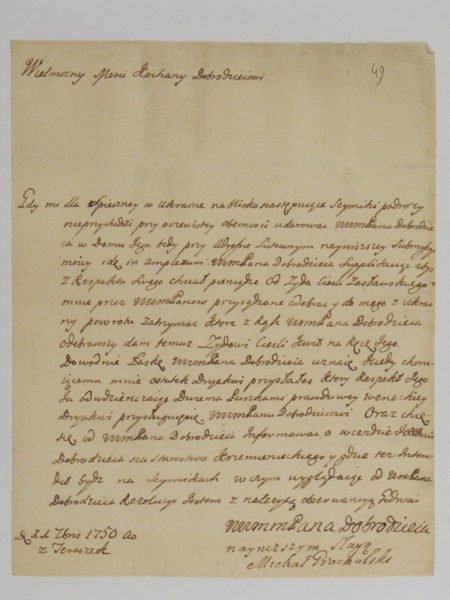 49
Wielmozny Mosci Kochany Dobrodzieiowi
Gdy mi dla Spieszney w Ukraine na blisko następuiące Seymiki podrozy
nieprzychodzi przy oczewistey obecnosci WMMPana Dobrodzie
ia w Domu Jego tedy przy Listownym nayniszszey
idę in Amplexum WMMPana Dobrodzieia Supplikuiąc abys
z Respektu Swego chciał pieniądze od Zyda Ciesli Zasławskiego
mnie przez WMMPanow przysądzone odebrac y do mego z Ukrai
ny powrotu zatrzymac ktore z Rąk WMMPana Dobrodzieia
odebrawszy dam temuz Zydowi Ciesli Kwit na Ręce Jego
Dowodnie Łaskę WMMPana Dobrodzieia uznaię kiedy choru
iącemu mnie ostatek Dryakwi przysłałes ktory Respekt Jego
Ja odwdzieczaiąc Dwiema Puszkami prawdziwey weneckiey
Dryakwi WMMPanu Dobrodzieiowi Oraz chcę
się od WMMPana Dobrodzieia Informowac o
Dobrodzieia na Starostwo Krzemienieckiego y gdzie tez
bydz na Seymikach w czym wyglądaiąc od WMPana
Dobrodzieia Rezolucyi Jestem z nalezytą obserwancyą
WMMMPana Dobrodzieia
nayniszszym Sługą
Michał Grocholski
7bris 1750 Ao
z Tereszek